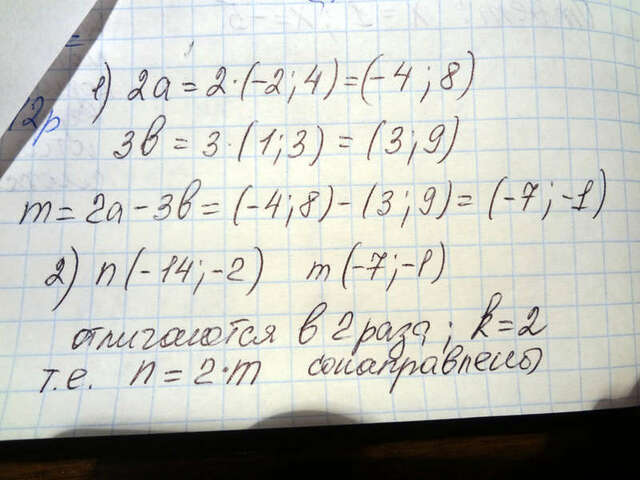 1) 2a = 2·(-2; 4) = (-4; 8)
3b = 3·(1; 3) = (3; 9)
m = 2a - 3b = (-4; 8) - (3; 9) = (-7; -1)
2) n(-14; -2) m(-7; -1)
отличаются в 2 раза; k=2
т.е. n = 2·m сонаправлены